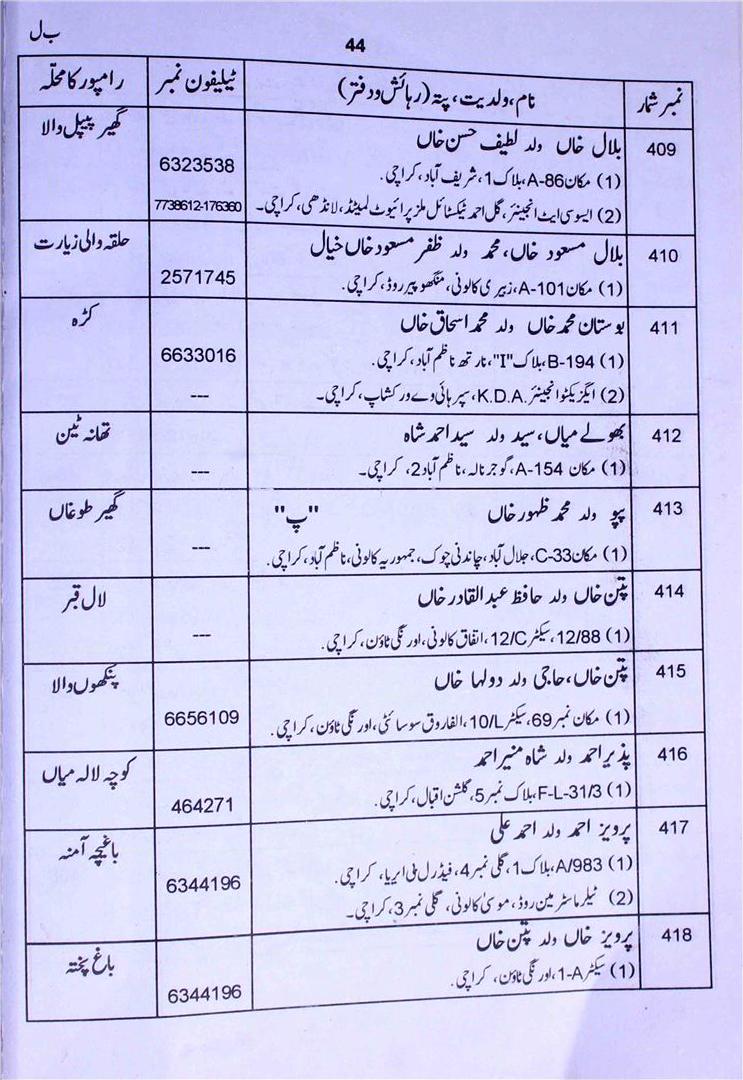 ب ل
44
نمبر شمار | نام، ولدیت، پتہ (رہائش و دفتر) | ٹیلیفون نمبر | رامپور کا محلّہ
409 | بلال خاں ولد لطیف حسن خاں | گھیر پیپل والا
(1) مکان A-86، بلاک 1، شریف آباد، کراچی. | 6323538
(2) ایسوسی ایٹ انجینئر، گل احمد ٹیکسٹائل ملز پرائیوٹ لمیٹڈ، لانڈھی، کراچی۔ | 7738612-176360
410 | بلال مسعود خاں، محمد ولد ظفر مسعود خاں خیال | حلقہ والی زیارت
(1) مکان A-101، زبیری کالونی، منگھو پیر روڈ، کراچی. | 2571745
411 | بوستان محمد خاں ولد محمد اسحاق خاں | کڑہ
(1) B-194، بلاک "I"، نارتھ ناظم آباد، کراچی. | 6633016
(2) ایگزیکٹو انجینئر K.D.A.، سپر ہائی وے ورکشاپ، کراچی۔ | ---
412 | بھولے میاں، سید ولد سید احمد شاہ | تھانہ ٹین
(1) مکان A-154، گوجر نالہ، ناظم آباد 2، کراچی۔ | ---
413 | پپو ولد محمد ظہور خاں "پ" | گھیر طوغاں
(1) مکان C-33، جلال آباد، چاندنی چوک، جمہوریہ کالونی، ناظم آباد، کراچی. | ---
414 | پتن خاں ولد حافظ عبدالقادر خاں | لال قبر
(1) 12/88، سیکٹر 12/C، اتفاق کالونی، اورنگی ٹاؤن، کراچی. | ---
415 | پتن خاں، حاجی ولد دولہا خاں | پنکھوں والا
(1) مکان نمبر 69، سیکٹر 10/L، الفاروق سوسائٹی، اورنگی ٹاؤن، کراچی. | 6656109
416 | پذیر احمد ولد شاہ منیر احمد | کوچہ لالہ میاں
(1) F-L-31/3، بلاک نمبر 5، گلشن اقبال، کراچی. | 464271
417 | پرویز احمد ولد احمد علی | باغیچہ آمنہ
(1) A/983، بلاک 1، گلی نمبر 4، فیڈرل بی ایریا، کراچی. | 6344196
(2) ٹیلر ماسٹر مین روڈ، موسیٰ کالونی، گلی نمبر 3، کراچی۔
418 | پرویز خاں ولد پتن خاں | باغ پختہ
(1) سیکٹر 1-A، اورنگی ٹاؤن، کراچی. | 6344196